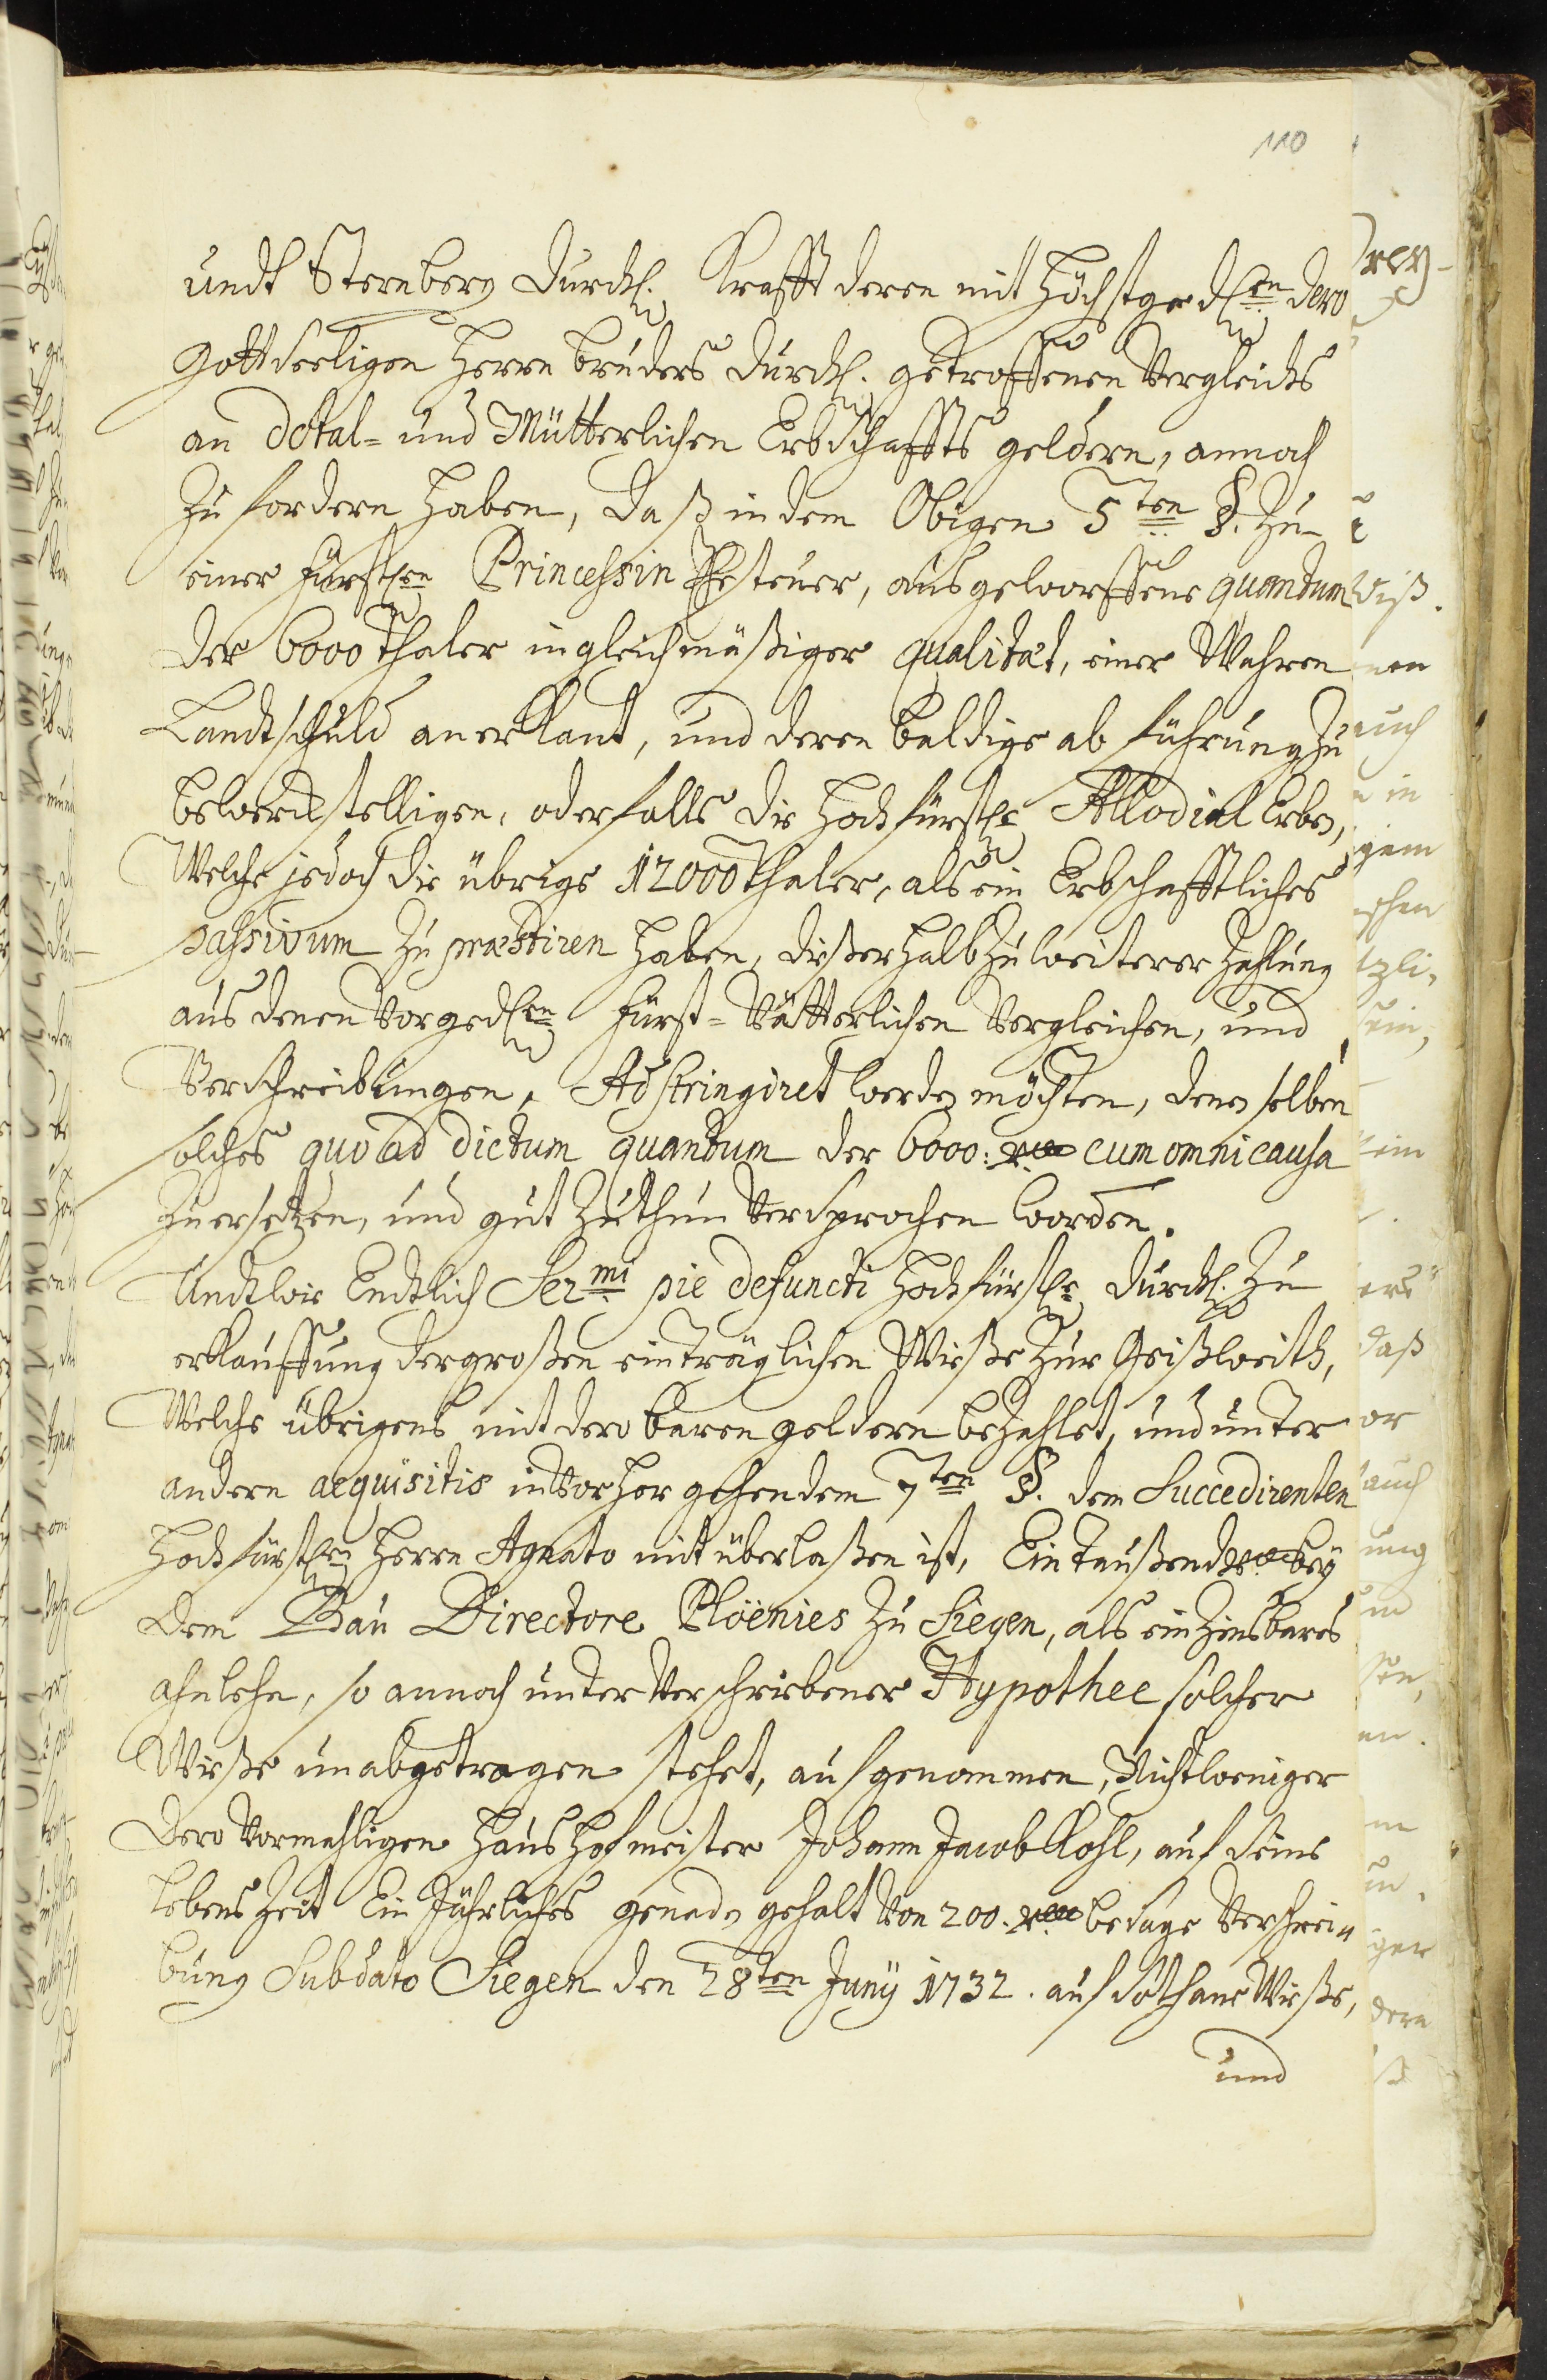 110
undt Sternberg Durchl. Krafft deren mit höchstged(en) dero
Gottseeligen Herren bruders Durchl. getroffenen Vergleichs
an dotal= und Mütterlichen Erbschaffts geldern, annoch
zu fordern haben, daß in dem Obigen 5ten §. zu
einer Fürstl(en) Princessin Ehesteuer, ausgeworffene quantum
der 6000 Thaler in gleichmäßiger qualitæt, einer Wahren
Landtschuld anerkant, und deren baldige abführung zu
bewerckstelligen, oder falls die hochfürstle Allodial Erben,
Welche jedoch die übrige 12000 Thaler, als ein Erbschafftliches
passivum zu præstiren haben, dießerhalb zu weiterer zahlung
aus denen Vorgedl(en) Fürst=Vätterlichen Vergleichen, und
Verschreibungen, Adstringiret werden möchten, denenselben
solches quoad dictum quantum der 6000: cum omni causa
zu ersetzen, und gut zuthun Versprochen worden.
Undt wie Endtlich Sermi pie defuncti hochfürstle Durchl. zu
erkauffung der großen einträglichen Wieße zur Geißweith,
Welche übrigens mit dero baren geldern bezahlet, und unter
andern acquisitis in Vorhergehendem 7ten §. dem Succedirenten
hochfürstlen Herren Agnato mit überlaßen ist, Ein taußend bey
dem Bau Directore Plöenies zu Siegen, als ein zinsbares
ahnlehn, so annoch unter Verschriebener Hypothec solcher
Wieße unabgetragen stehet, aufgenommen, Nicht weniger
dero Vormahligen Haus Hofmeister Johann Jacob Kohl, auf seine
lebens Zeit Ein Jährliches genaden gehalt Von 200. besage Verschrei
bung Sub dato Siegen den 28ten Junÿ 1732. auf sothane Wieße,
und